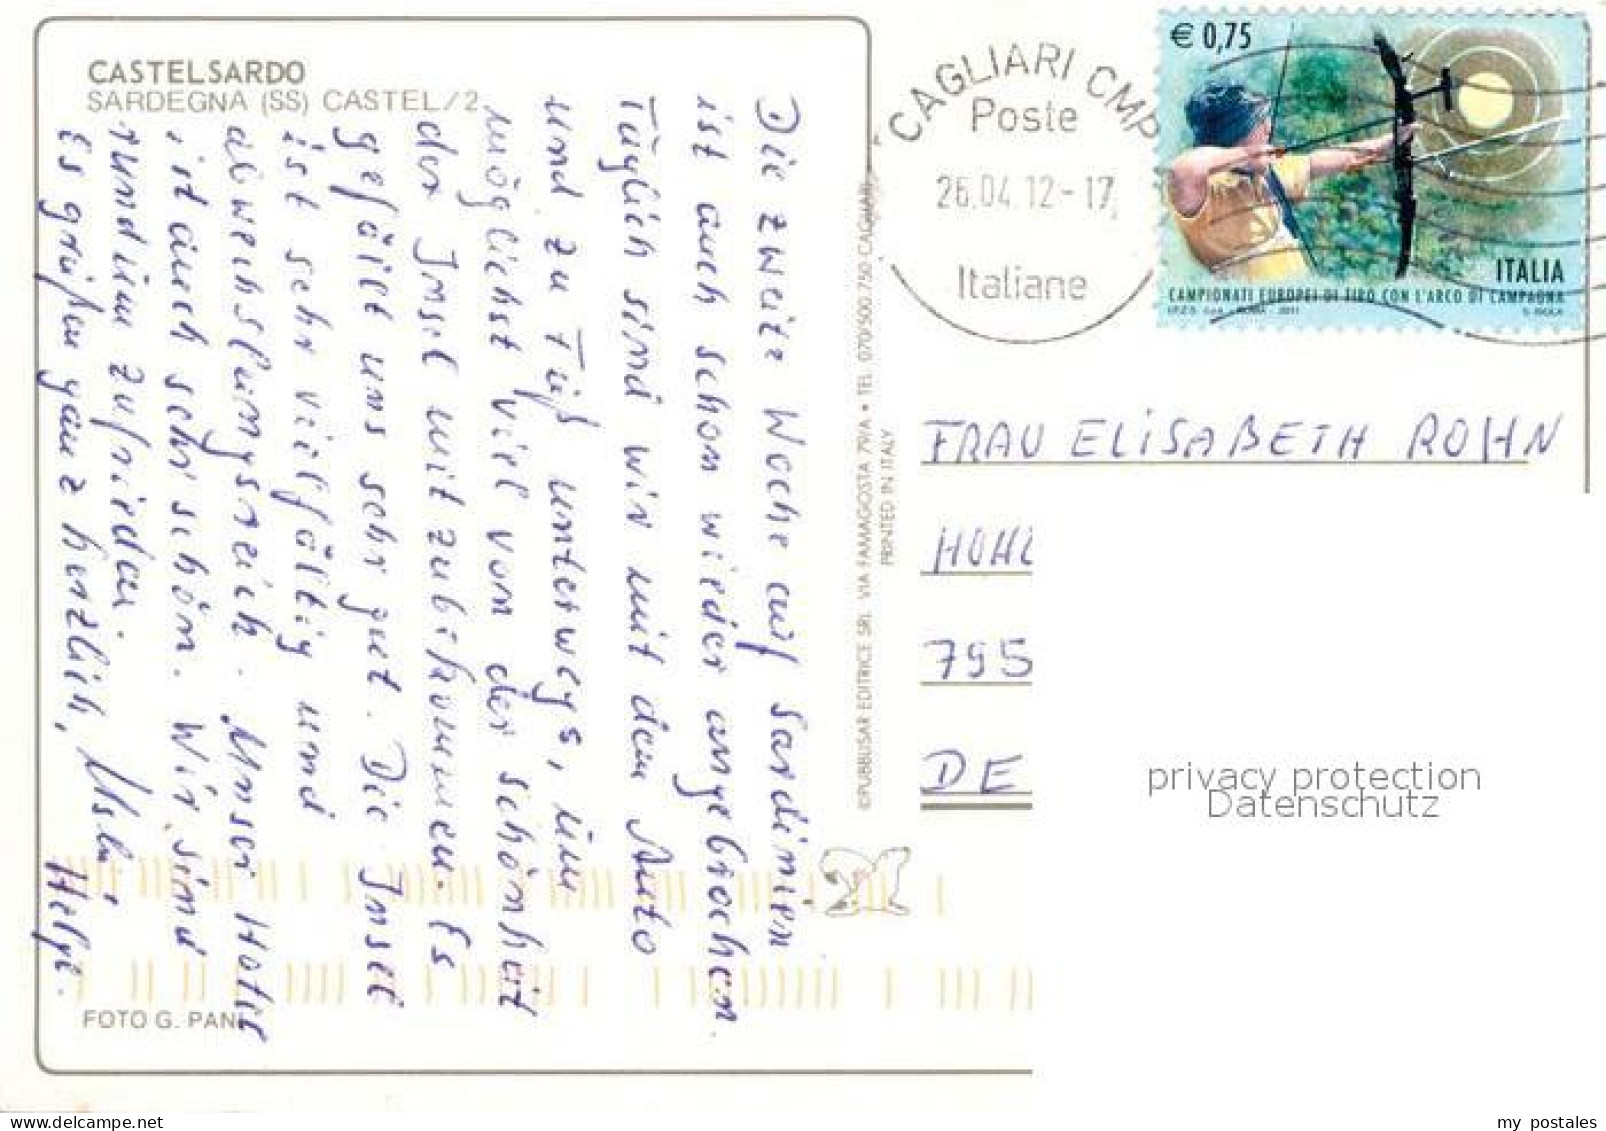 CASTELSARDO
SARDEGNA (SS) CASTEL/2
Die zweite Woche auf Sardinien
ist auch schon wieder angebrochen.
Täglich sind wir mit dem Auto
und zu Fuß unterwegs, um
möglichst viel von der Schönheit
der Insel mitzubekommen. Es
gefällt uns sehr gut. Die Insel
ist sehr vielfältig und
abwechslungsreich. Unser Hotel
ist auch sehr schön. Wir sind
rundum zufrieden.
Es grüßen ganz herzlich,
Helge.
FOTO G. PANI
©PUBBLISAR EDITRICE SRL VIA FAMAGOSTA 79/A • TEL 070/500 750 CAGLIARI
PRINTED IN ITALY
CAGLIARI CMP
Poste
26.04.12-17
Italiane
€ 0,75
ITALIA
CAMPIONATI EUROPEI DI TIRO CON L'ARCO DI CAMPAGNA
I.P.Z.S. S.p.A. - ROMA - 2011
S. ISOLA
FRAU ELISABETH ROHN
HOHL
795
DE
privacy protection
Datenschutz
delcampe.net
my_postales